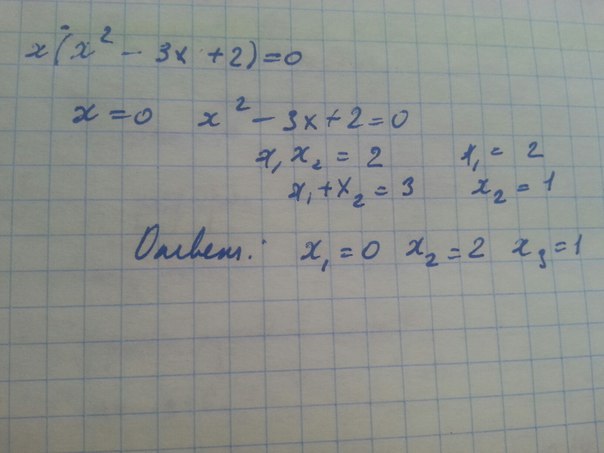 x(x² - 3x + 2) = 0
x = 0 x² - 3x + 2 = 0
x₁ x₂ = 2 x₁ = 2
x₁ + x₂ = 3 x₂ = 1
Ответ: x₁ = 0 x₂ = 2 x₃ = 1